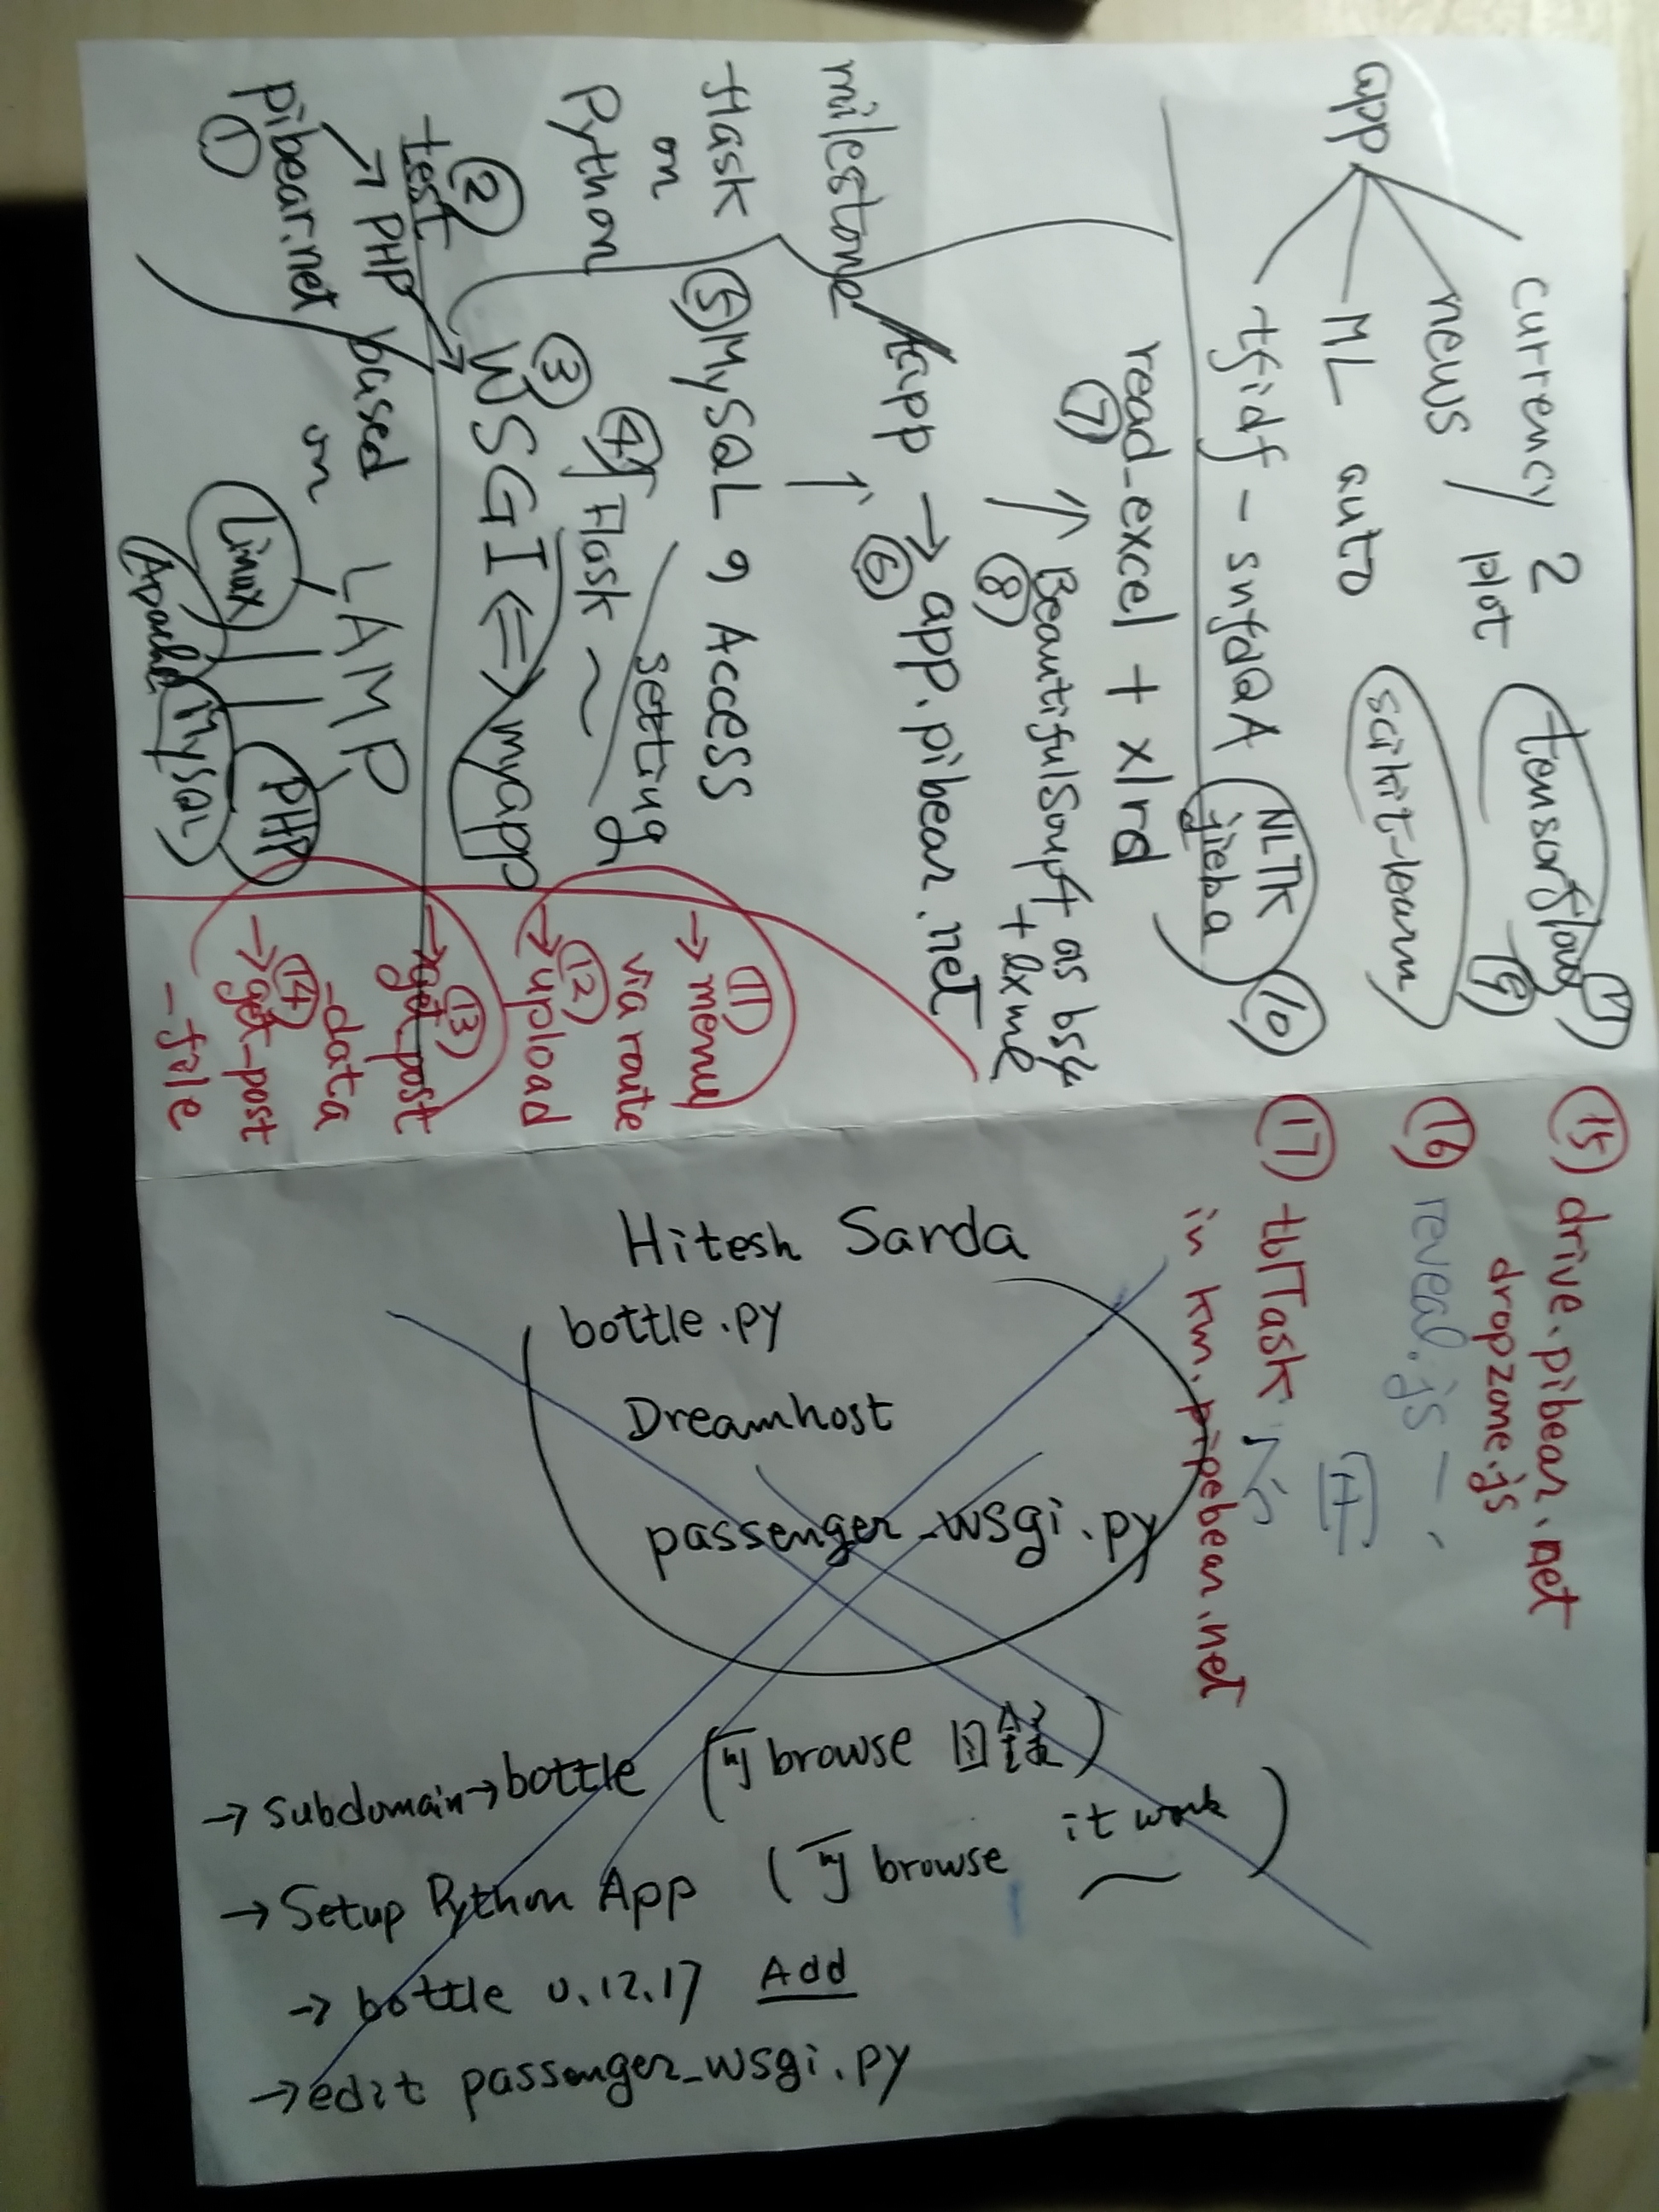 app
currency 2
news / plot
tensorflow
ML auto
scikit-learn
9
tfidf - snfdQA
NLTK
jieba
10
read_excel + xlrd
7
BeautifulSoup4 as bs4
+ lxml
8
milestone
app → app.pibear.net
6
flask
on
Python
5 MySQL, Access
setting
4 Flask ~
3
WSGI ⇔ myapp
2
test
→ PHP
pibear.net based
on
1
LAMP
Linux
Apache
MySQL
PHP
11
→ menu
via route
12
→ upload
13
→ get_post
_data
14
→ get_post
_file
15 drive.pibear.net
dropzone.js
16 reveal.js
17 tblTask
in km.pipebear.net
不
用
Hitesh Sarda
bottle.py
Dreamhost
passenger_wsgi.py
→ subdomain → bottle (可 browse 目錄)
→ Setup Python App (可 browse it work)
→ bottle 0.12.17 Add
→ edit passenger_wsgi.py